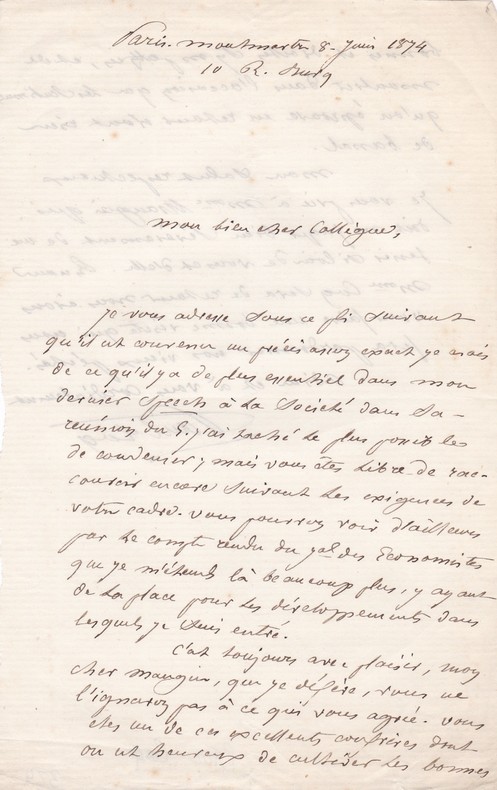 Paris. Montmartre 8. Juin 1874
10 R. Burq
Mon bien cher Collègue,
Je vous adresse sous ce pli suivant
qu'il est convenu un précis assez exact je crois
de ce qu'il y a de plus essentiel dans mon
dernier speech à la Société dans sa
réunion du 5. J'ai taché le plus possible
de condenser, mais vous êtes libre de rac-
courcir encore suivant les exigences de
votre cadre. Vous pourrez voir d'ailleurs
par le compte rendu du Jal des Economistes
que je m'étends là beaucoup plus, y ayant
de la place pour les développements dans
lesquels je suis entré.
C'est toujours avec plaisir, mon
cher Mangin, que je défère, vous ne
l'ignorez pas à ce qui vous agrée. Vous
etes un de ces excellents confrères dont
on est heureux de cultiver les bonnes